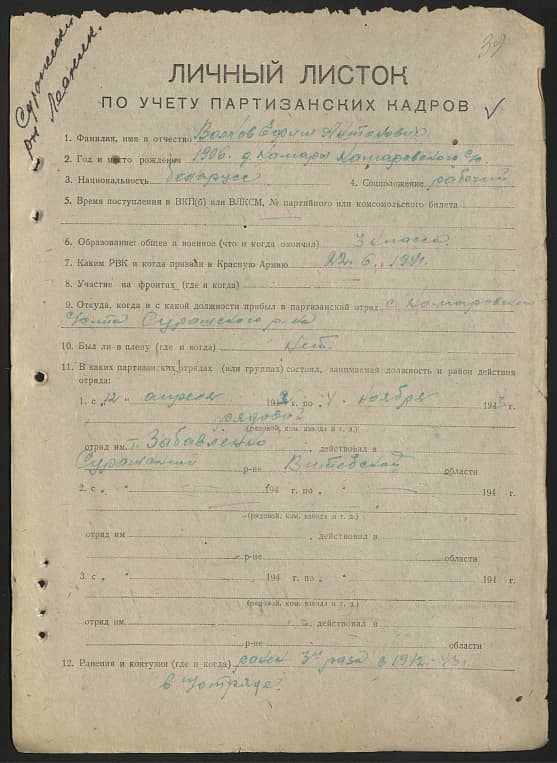 Суражский
р-н
39
ЛИЧНЫЙ ЛИСТОК
ПО УЧЕТУ ПАРТИЗАНСКИХ КАДРОВ
1. Фамилия, имя и отчество Ефим Антонович
2. Год и место рождения 1906. д. Комары Комаровского с/с.
3. Национальность беларусс 4. Соцположение рабочий
5. Время поступления в ВКП(б) или ВЛКСМ, № партийного или комсомольского билета
6. Образование: общее и военное (что и когда окончил) 3 класса
7. Каким РВК и когда призван в Красную Армию 22. 6. 1941.
8. Участие на фронтах (где и когда)
9. Откуда, когда и с какой должности прибыл в партизанский отряд с Комаровского
с/совета Суражского р-на
10. Был ли в плену (где и когда) Нет.
11. В каких партизанских отрядах (или группах) состоял, занимаемая должность и район действия
отряда:
1. с „12 " апреля 1942 г. по „4 " ноября 194 г.
рядовой
(рядовой, ком. взвода и т. д.)
отряд им. т. Забавленко , действовал в
Суражский р-не Витебской области
2. с „ " 194 г. по „ " 194 г.
(рядовой, ком. взвода и т. д.)
отряд им , действовал в
р-не области
3. с „ " 194 г. по „ " 194 г.
(рядовой, ком. взвода и т. д.)
отряд им , действовал в
р-не области
12. Ранения и контузии (где и когда) ранен 3 раза в 1942-43г
в отряде.